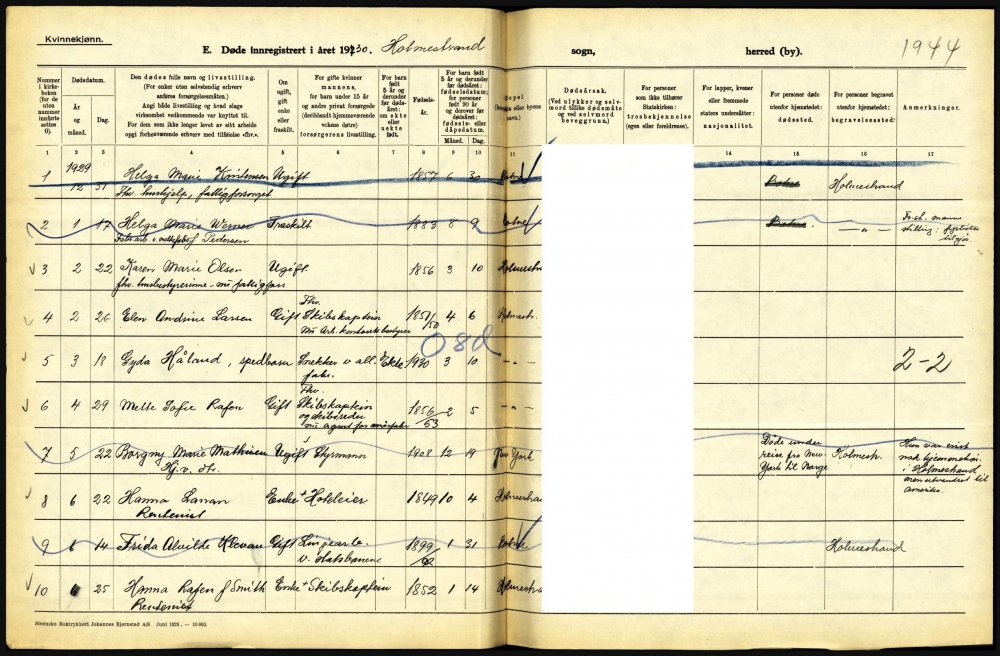 Kvinnekjønn.
E. Døde innregistrert i året 1930. Holmestrand sogn, herred (by). 1944
Nummer i kirke-boken (for de uten nummer innførte settes 0).
Dødsdatum.
År og måned.
Dag.
Den dødes fulle navn og livsstilling.
(For enker uten selvstendig erhverv angis forsørgelsesmåten.)
Angi både livsstilling og hvad slags virksomhet vedkommende var knyttet til.
For dem som ikke lenger levet av sitt arbeide opgi forhenværende erhverv med tilføielse «fhv.».
Om ugift, gift, enke eller fraskilt.
For gifte kvinner mannens, for barn under 15 år og andre privat forsørgede (deriblandt hjemmeværende voksne døtre) forsørgerens livsstilling.
For barn født 5 år og derunder før døds-året: om ekte eller uekte født.
Fødsels-år.
For barn født 5 år og derunder før dødsåret: fødselsdatum;
for personer født 90 år og derover før dødsåret: fødsels- eller dåpsdatum.
Måned. Dag.
Dødsårsak.
(Ved ulykker og selvmord tillike dødsmåte og ved selvmord beveggrunn.)
For personer som ikke tilhører Statskirken: trosbekjennelse (egen eller foreldrenes).
For lapper, kvener eller fremmede staters undersåtter: nasjonalitet.
For personer døde utenfor hjemstedet: dødssted.
For personer begravet utenfor hjemstedet: begravelsessted.
Anmerkninger.
1 2 3 4 5 6 7 8 9 10 11 14 15 16 17
1 1929 12 31 Helga Marie Ugift 1857 6 30 Botne Botne Holmestrand
Fhv. hushjelp, fattigforsørget
2 1 17 Helga Marie Werner Fraskilt 1883 8 9 Botne Botne -"-
Pedersen
3 2 22 Karen Marie Olsen Ugift 1856 3 10
fhv. husbestyrerinne - nu fattigfors
4 2 26 Elen Andrine Larsen Gift Fhv. Skibskaptein 1851/50 4 6 Holmestr.
nu Arb.kontorets bestyrer
080
5 3 18 Gyda Håland, spedbarn Ekte 1930 3 10 -"- 2-2
6 4 29 Mette Sofie Rafen Gift Fhv. Skibskaptein 1856/53 2 5 -"-
og skibsreder
7 5 22 Borgny Marie Mathisen Ugift Styrmann 1908 12 19 New York Døde under reise fra New York til Norge Holmestr.
Hj.v. dt.
8 6 22 Hanna Enke + Hoteleier 1849 10 4 Holmestrand
Rentenist
9 6 14 Frida Alvilde Klevan Gift Linjearb. 1899/92 1 31 Botne Holmestrand
v. Statsbanene
10 6 25 Hanna Rafen f Smith Enke + Skibskaptein 1852 1 14 Holmestrand
Rentenist
Steenske Boktrykkeri Johannes Bjørnstad A/S. Juni 1929.